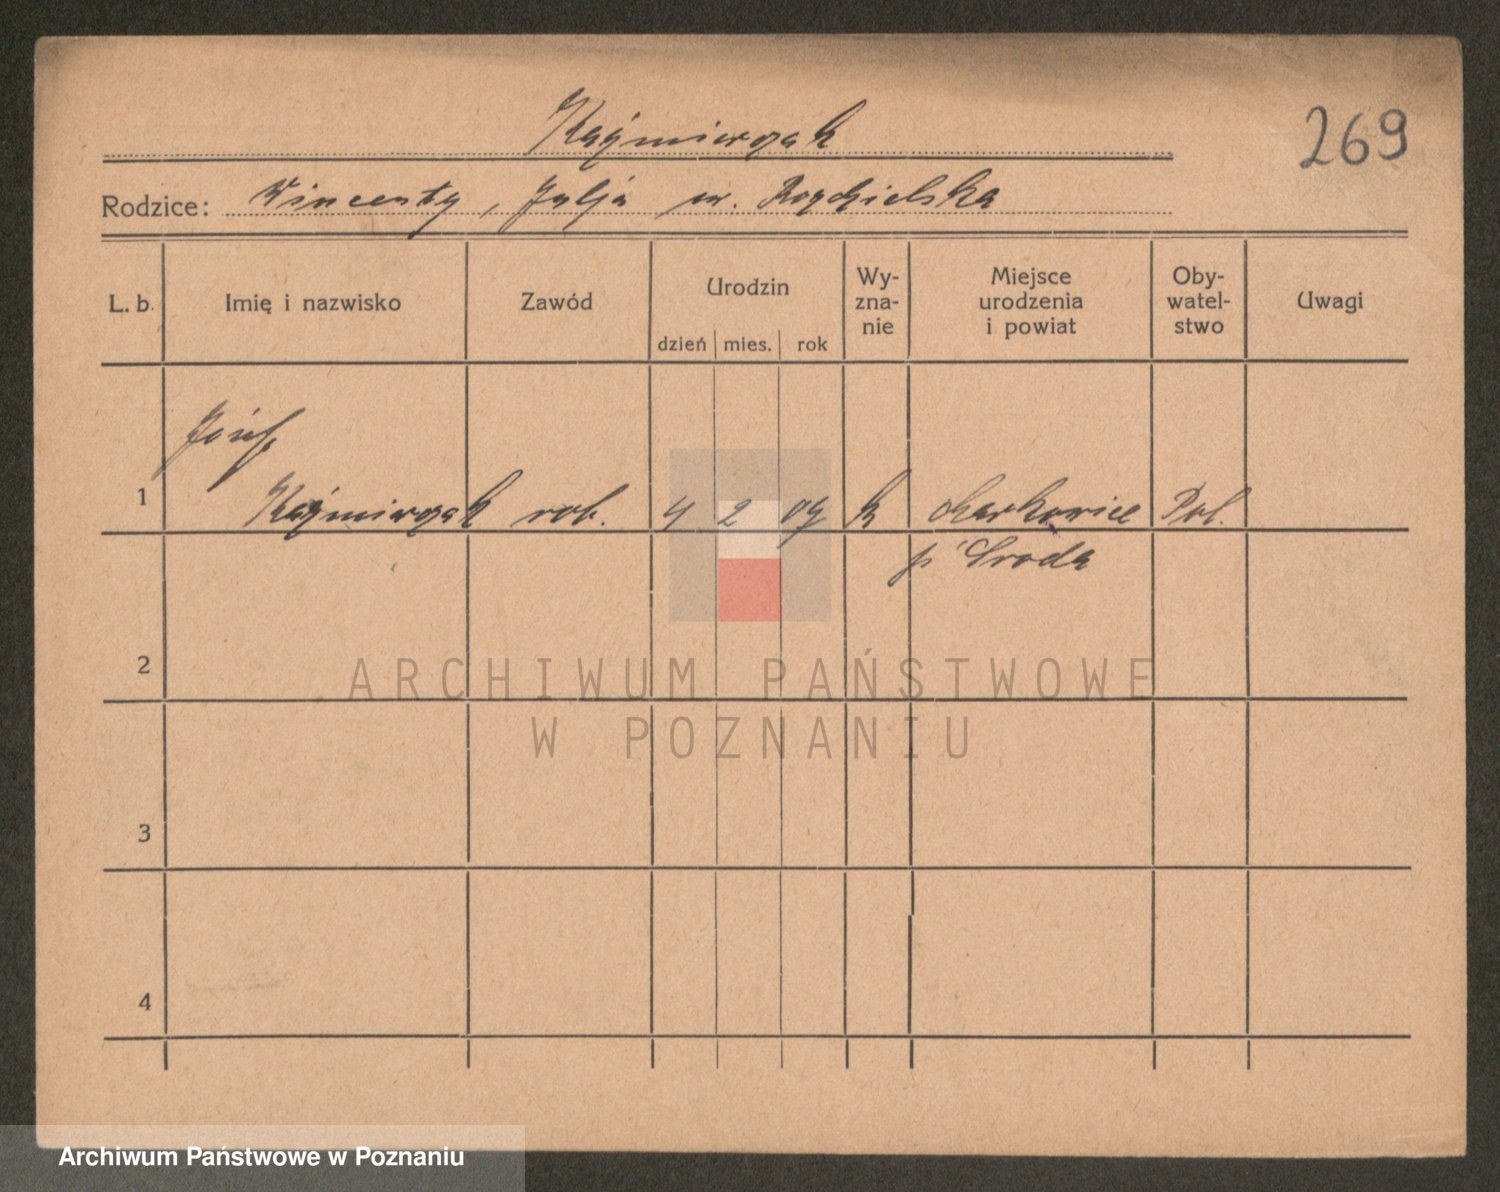 Kaźmierczak
269
Rodzice: Wincenty, Julja ur. Rozdzielska
L. b. Imię i nazwisko Zawód Urodzin dzień mies. rok Wy-zna-nie Miejsce urodzenia i powiat Oby-watel-stwo Uwagi
Józef
1 Kaźmierczak rob. 4 2 07 k Markowice Pol.
p. Środa
2
ARCHIWUM PAŃSTWOWE
W POZNANIU
3
4
Archiwum Państwowe w Poznaniu